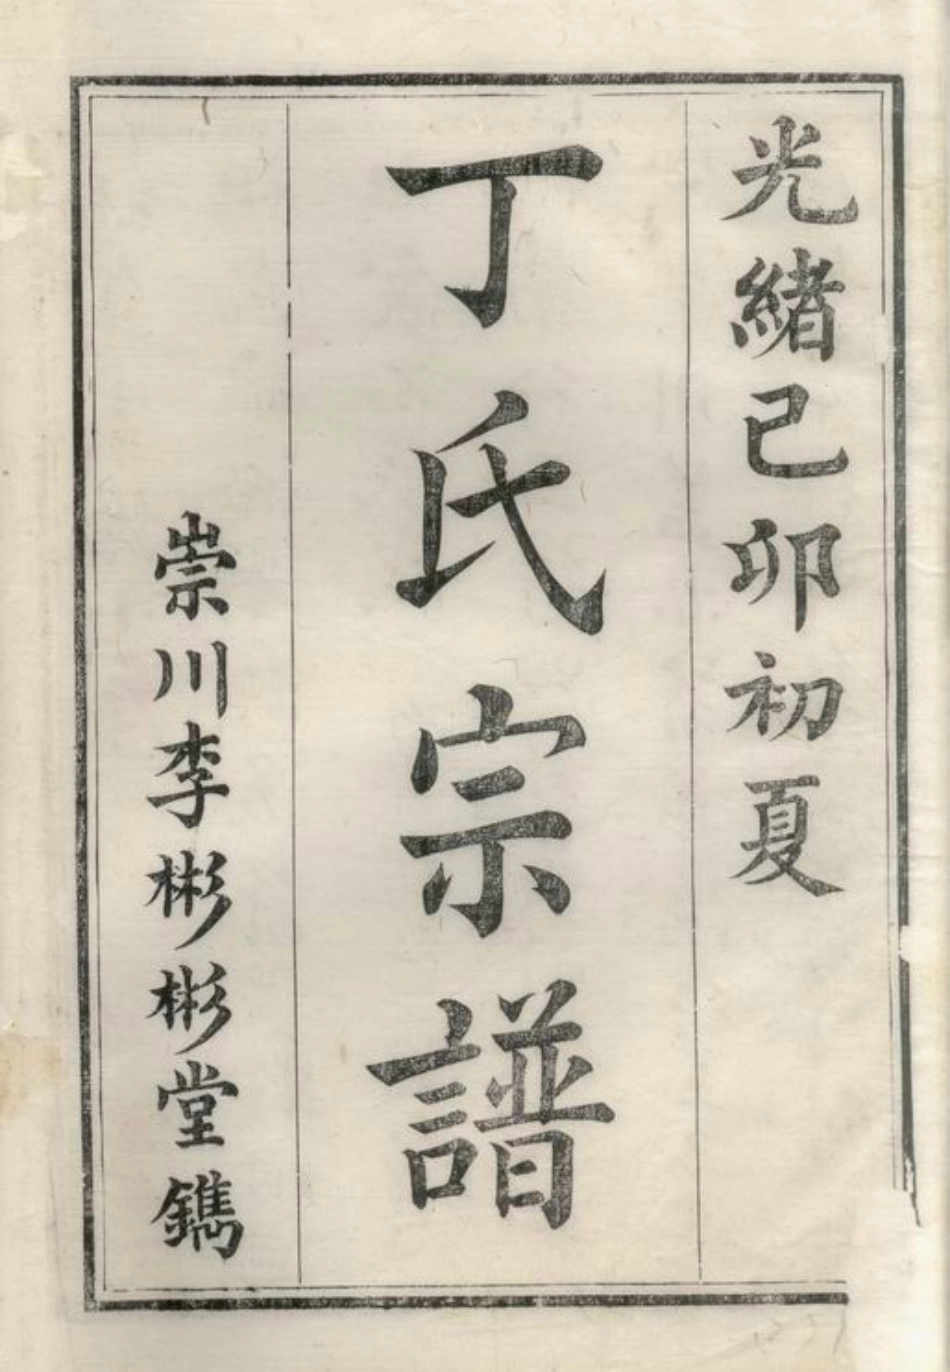 光緒己卯初夏
丁氏宗譜
崇川李彬彬堂鐫